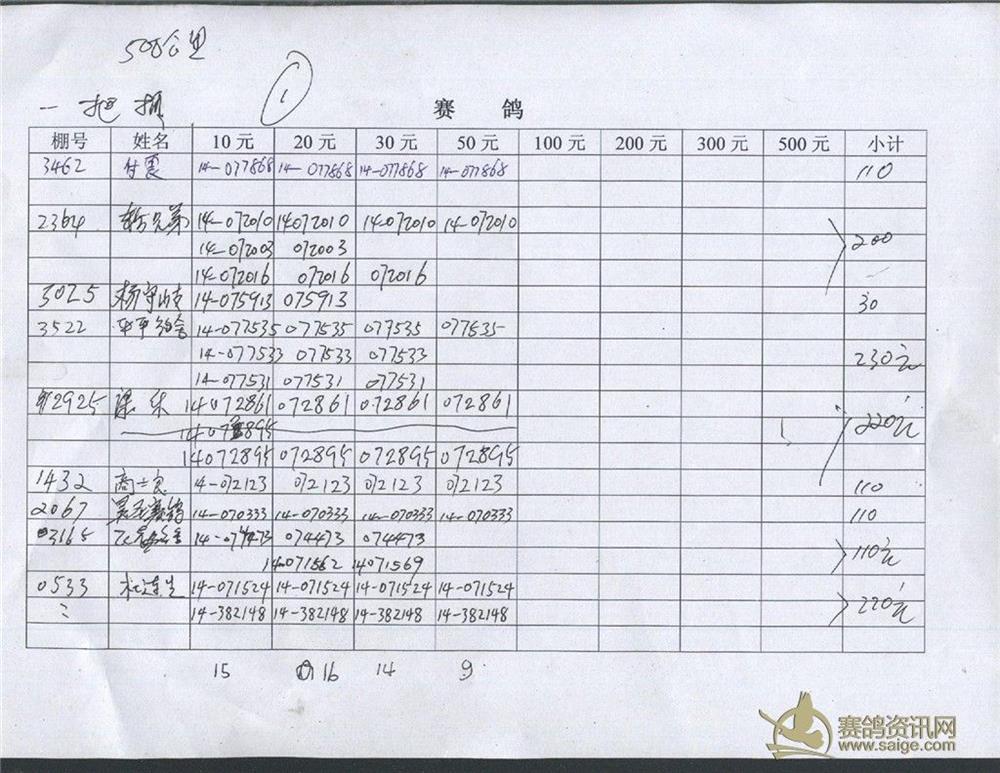 500公里
一 把抓 1
赛 鸽
棚号 姓名 10元 20元 30元 50元 100元 200元 300元 500元 小计
3462 付震 14-077868 14-077868 14-077868 14-077868 110
2364 兄弟 14-072010 14072010 14-072010 14-072010
14-072003 072003 200
14-072016 072016 072016
3025 杨守 14-075913 075913 30
3522 平平鸽舍 14-077535 077535 077535 077535
14-077533 077533 077533 230元
14-077531 077531 077531
2925 梁乐 14072861 072861 072861 072861
220元
14072895 072895 072895 072895
1432 商士良 14-072123 072123 072123 072123 110
2067 14-070333 14-070333 14-070333 14-070333 110
03165 074473 074473
14071562 14071569 110元
0533 杜连生 14-071524 14-071524 14-071524 14-071524
14-382148 14-382148 14-382148 14-382148 220元
15 16 14 9
赛鸽资讯网
www.saige.com